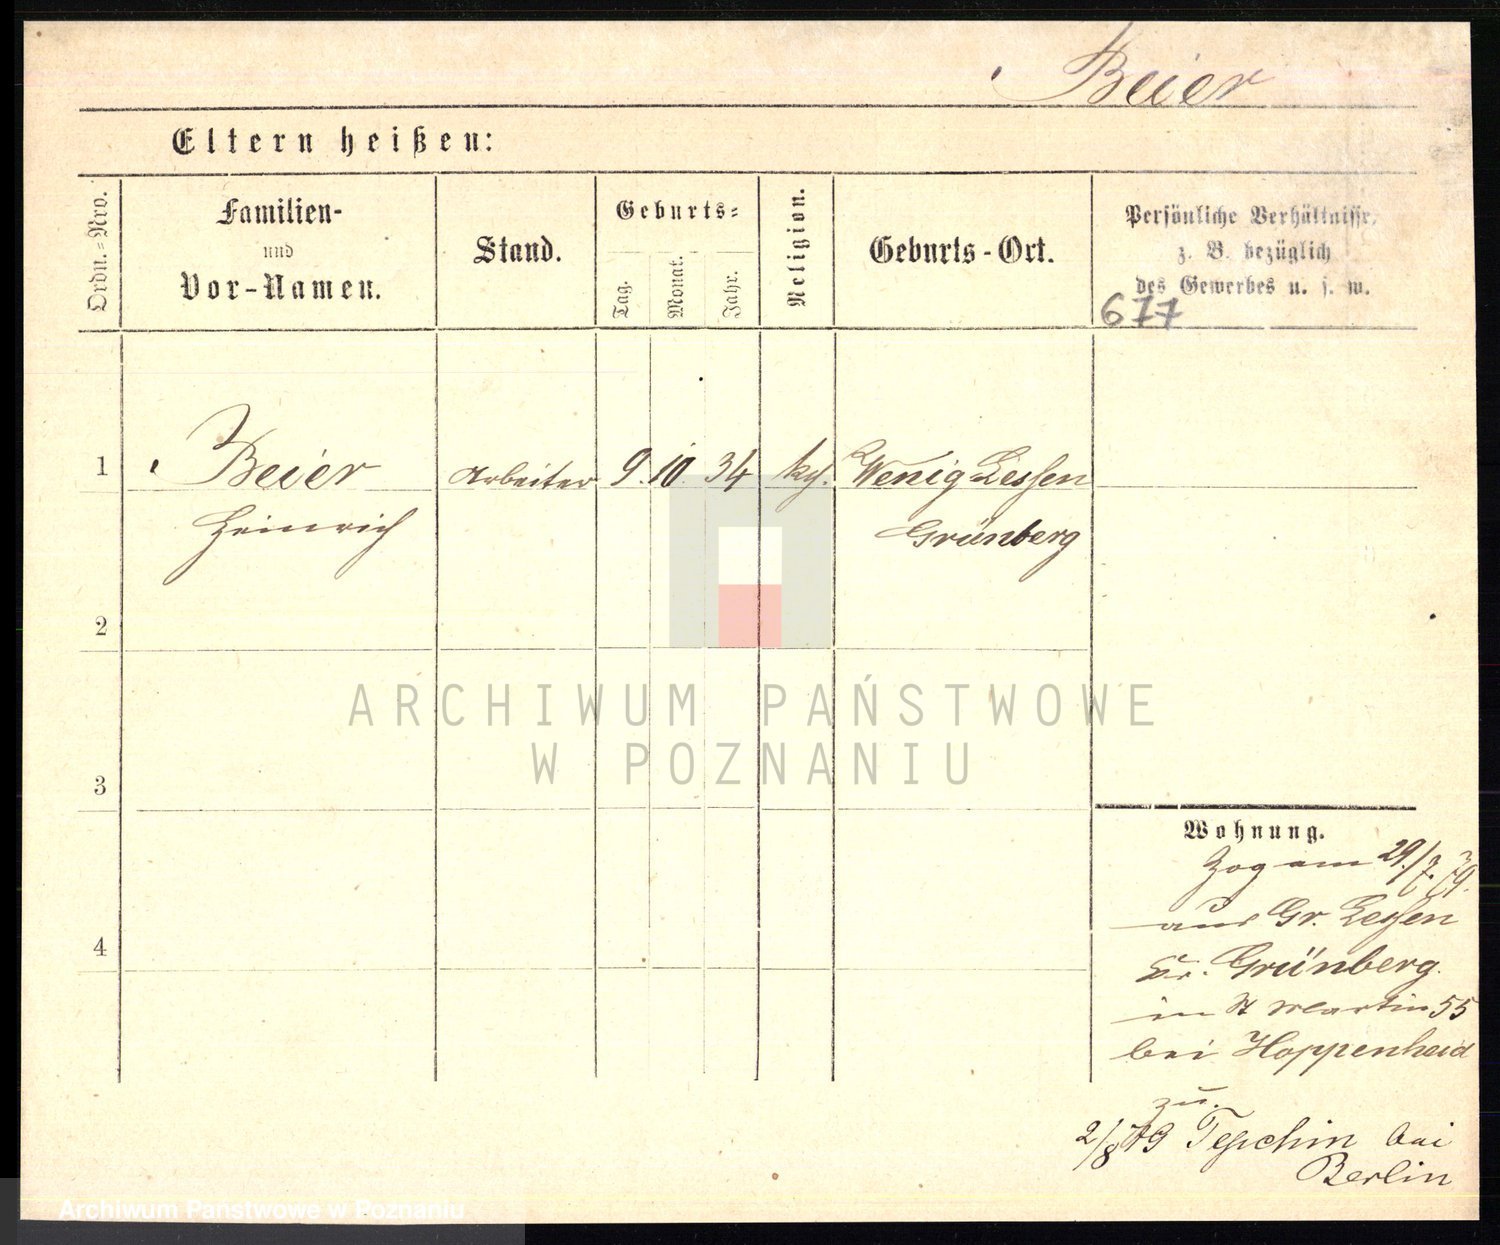 Beier
Eltern heißen:
Ordn.=Nro.
Familien-
und
Vor-Namen.
Stand.
Geburts=
Tag.
Monat.
Jahr.
Religion.
Geburts-Ort.
Persönliche Verhältnisse,
z. B. bezüglich
des Gewerbes u. s. w.
677
1 Beier Arbeiter 9. 10. 34 Wenig Lessen
Heinrich Grünberg
2
ARCHIWUM PAŃSTWOWE
W POZNANIU
3
Wohnung.
Zog am 29./7. 79.
aus Gr. Lessen
Kr. Grünberg.
in St Martin 55
bei Hoppenheid
4
zu.
2/8 79 bei
Berlin
Archiwum Państwowe w Poznaniu